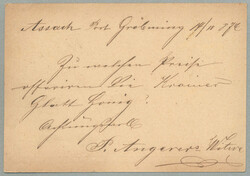 Assach Post Gröbming 19/11 87
Zu welchen Preise
offeriren Die Krainer
Glatt Honig?
Achtungsvoll
P. Angerer Witwe